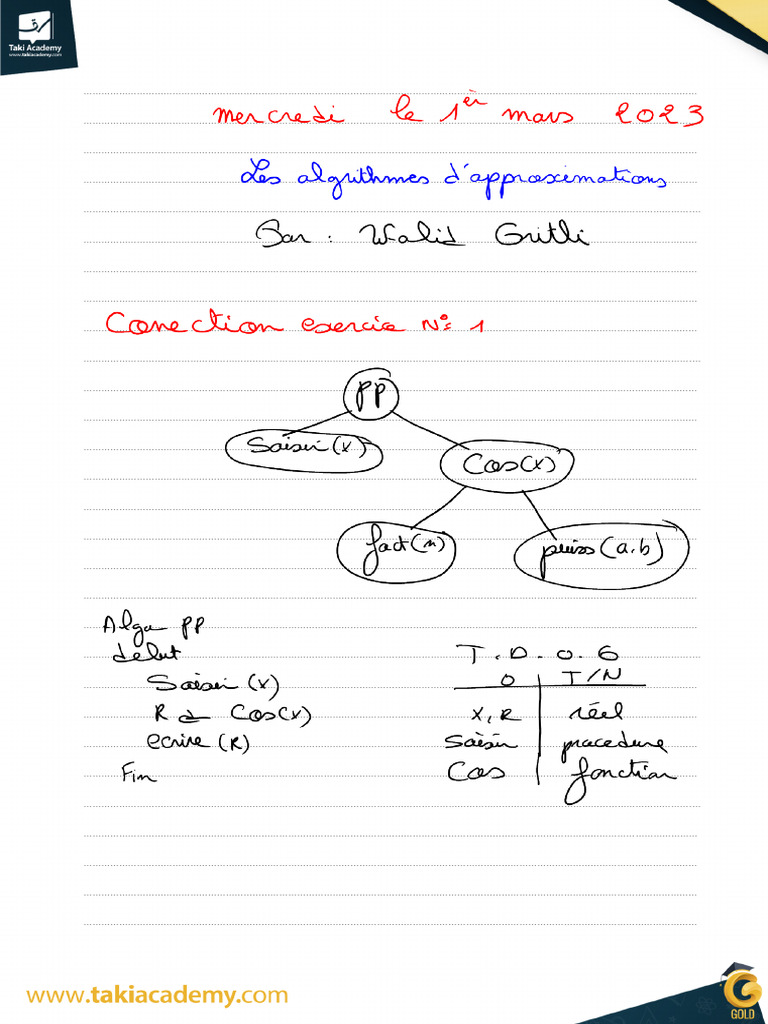 Taki Academy
www.takiacademy.com
mercredi le 1èr mars 2023
Les algrithmes d'approximations
Par : Walid Gritli
Correction exercie N°: 1
PP
Saisir(x)
Cos(x)
fact(n)
puiss(a,b)
Algo PP
debut
Saisir(x)
R ← Cos(x)
ecrire(R)
Fin
T.D.O.G
O T/N
X,R réel
Saisir procedure
Cos fonction
www.takiacademy.com
G
GOLD